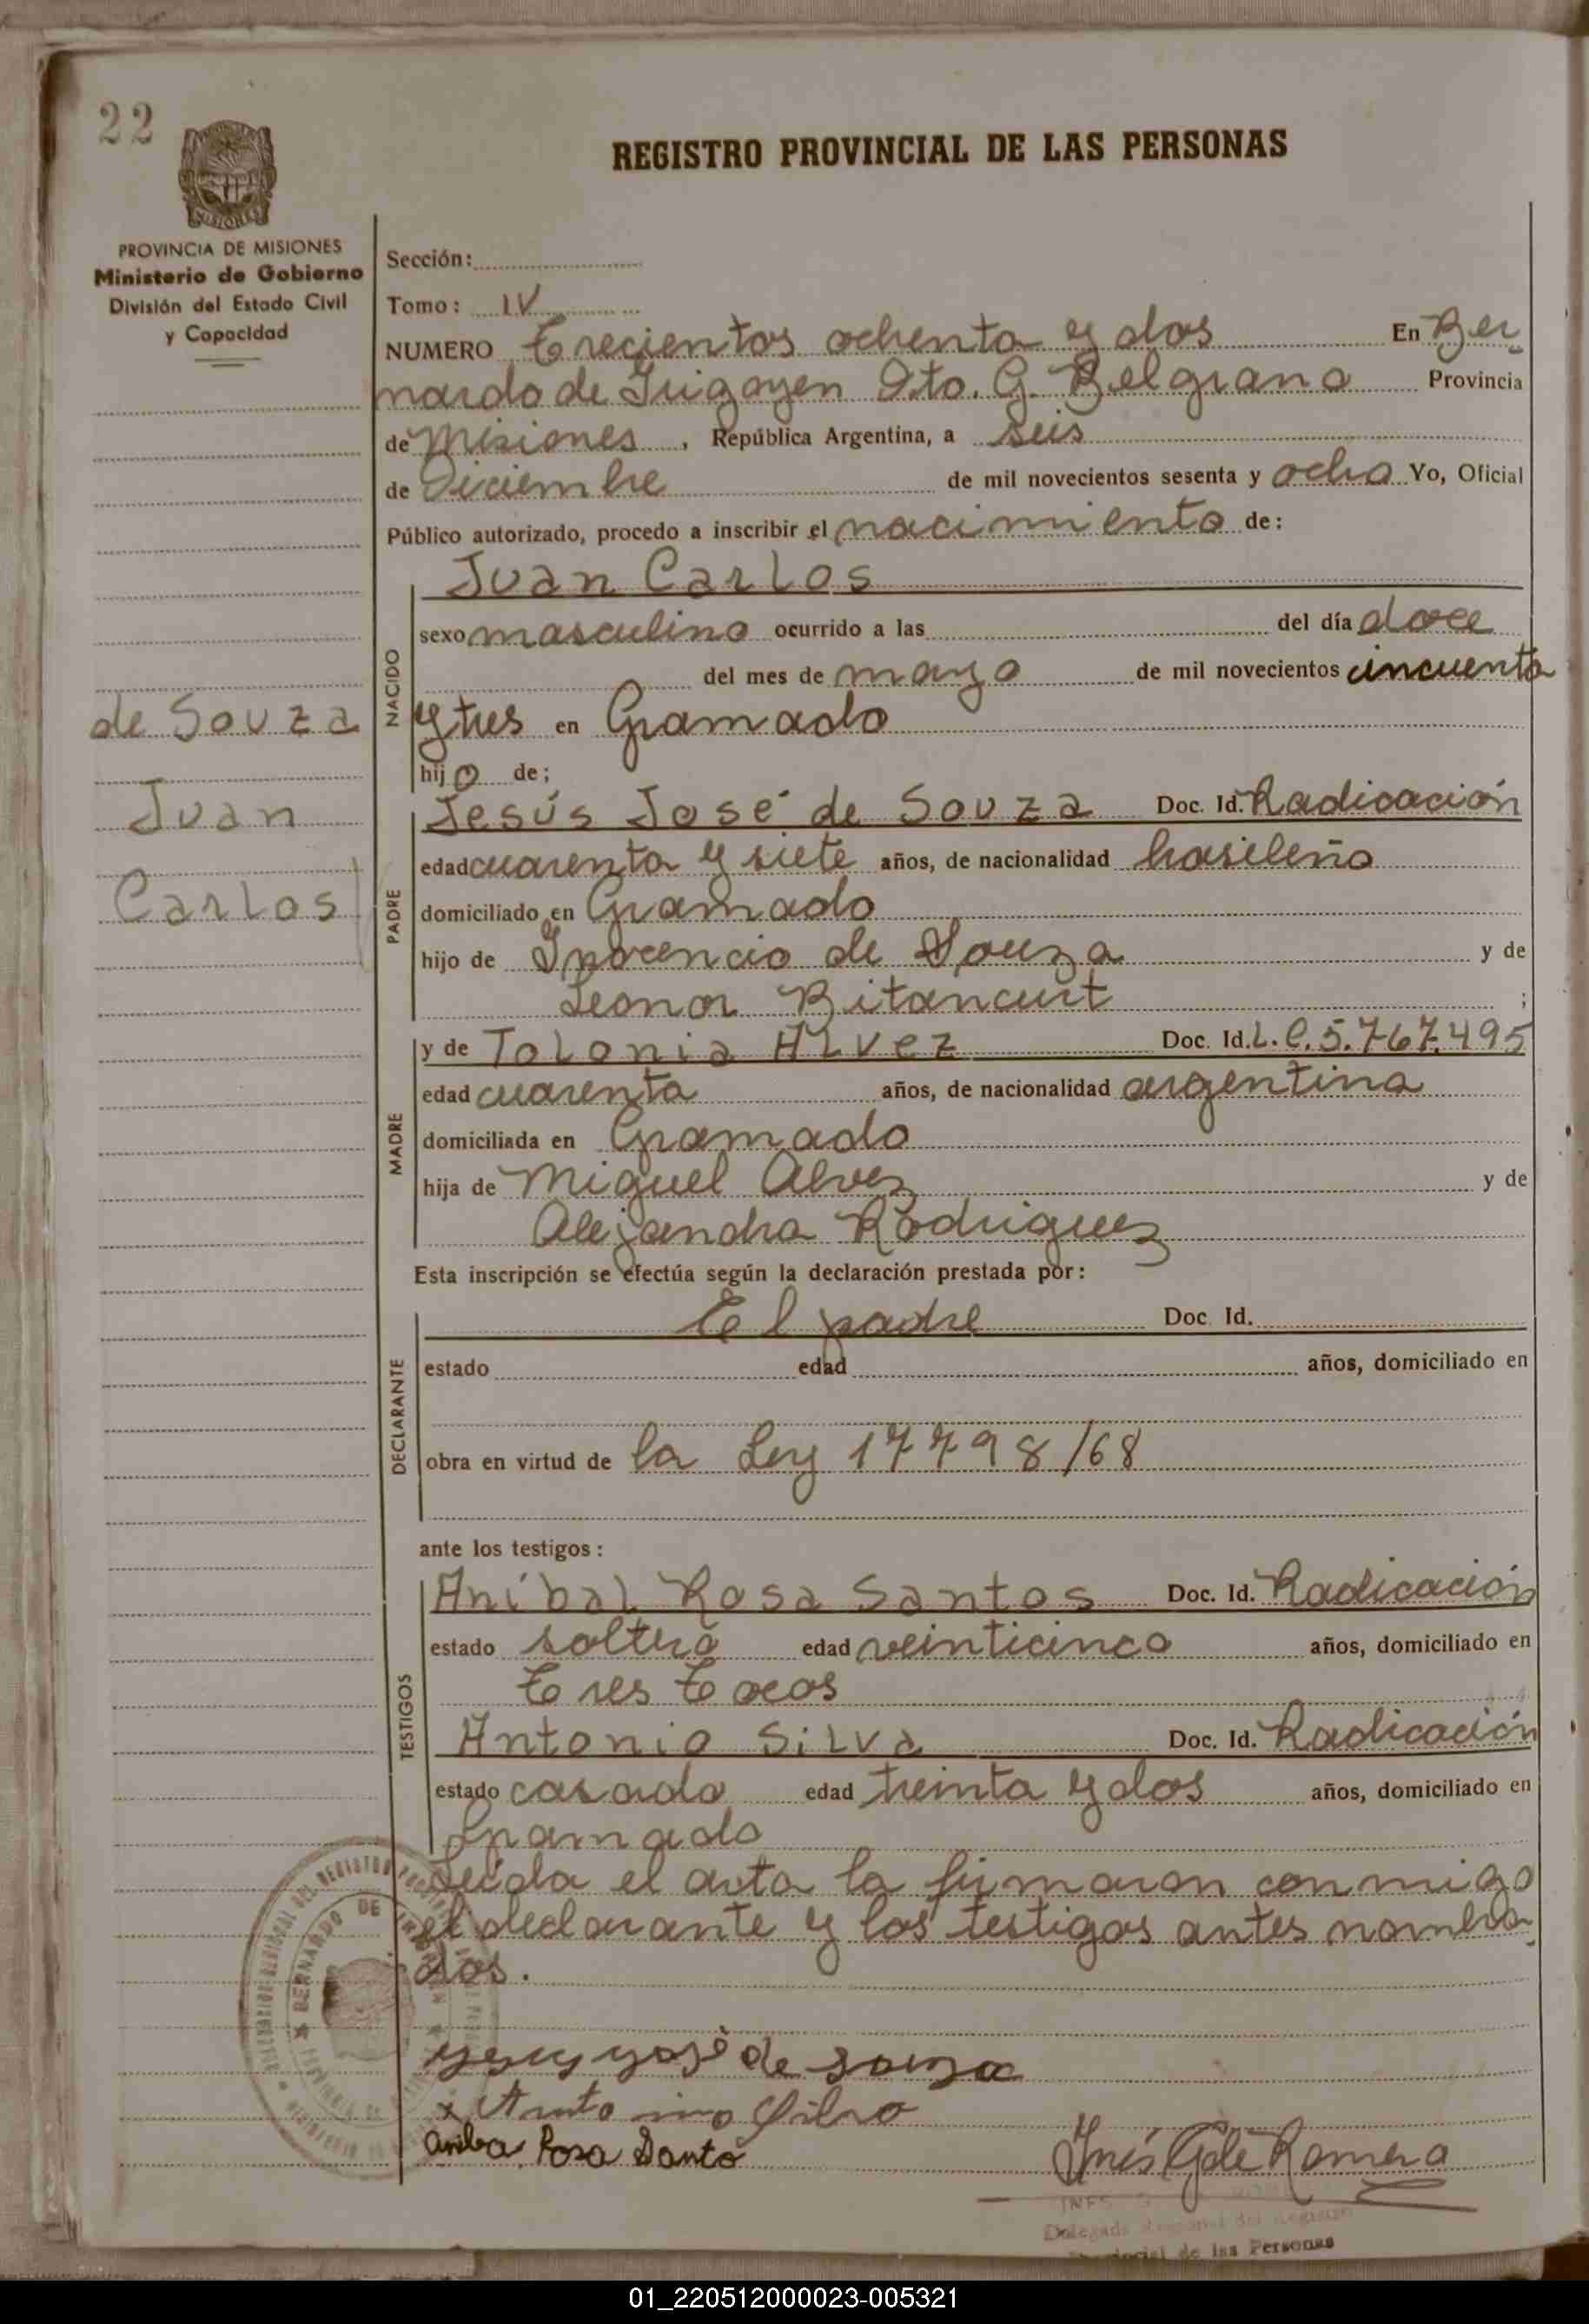 22
REGISTRO PROVINCIAL DE LAS PERSONAS
MISIONES
PROVINCIA DE MISIONES
Ministerio de Gobierno
División del Estado Civil
y Capacidad
Sección:
Tomo: IV
NUMERO Trecientos ochenta y dos En Ber
nardo de Irigoyen Dto. G. Belgrano Provincia
de Misiones, República Argentina, a seis
de Diciembre de mil novecientos sesenta y ocho Yo, Oficial
Público autorizado, procedo a inscribir el nacimiento de:
Juan Carlos
NACIDO
sexo masculino ocurrido a las del día doce
del mes de mayo de mil novecientos cincuenta
y tres en Gramado
hijo de;
de Souza
Juan
Carlos
PADRE
Jesús José de Souza Doc. Id. Radicación
edad cuarenta y siete años, de nacionalidad brasileño
domiciliado en Gramado
hijo de Inocencio de Souza y de
Leonor Bitancurt ;
MADRE
y de Tolonia Alvez Doc. Id. L.C.5.767.495
edad cuarenta años, de nacionalidad argentina
domiciliada en Gramado
hija de Miguel Alvez y de
Alejandra Rodriguez
Esta inscripción se efectúa según la declaración prestada por:
DECLARANTE
El padre Doc. Id.
estado edad años, domiciliado en
obra en virtud de la Ley 17798/68
ante los testigos:
TESTIGOS
Aníbal Rosa Santos Doc. Id. Radicación
estado soltero edad veinticinco años, domiciliado en
Tres Tocos
Antonio Silva Doc. Id. Radicación
estado casado edad treinta y dos años, domiciliado en
Gramado
Leída el acta la firmaron conmigo
el declarante y los testigos antes nombra
dos.
BERNARDO DE
yesuy yosé de souza
x Antonino Silva
Aniba Rosa Santo
Inés Gdé Romero
INES
Delegada Regional del Registro
Provincial de las Personas
01_220512000023-005321